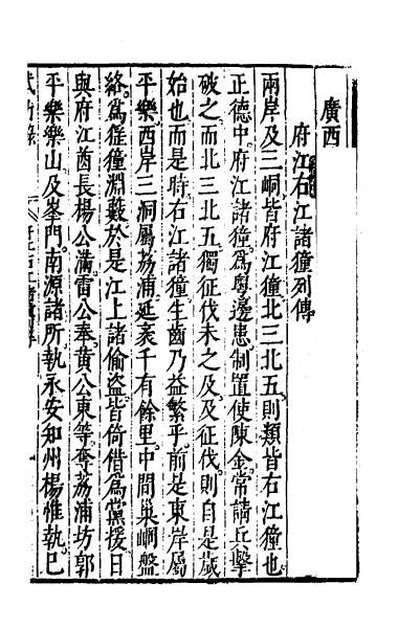 廣西
府江右江諸獞列傳
兩岸及三峒皆府江獞北三北五則類皆右江獞也
正德中府江諸獞為粵邊患制置使陳金常請兵擊
破之而北三北五獨征伐未之及及征伐則自是歲
始也而是時右江諸獞生齒乃益繁乎前是東岸屬
平樂西岸三洞屬荔浦延袤千有餘里中間巢峒盤
絡為猺獞淵藪於是江上諸偷盜皆倚借為黨援日
與府江酋長楊公滿雷公奉黃公東等奪荔浦坊郭
平樂樂山及峯門南源諸所執永安知州楊惟執巳